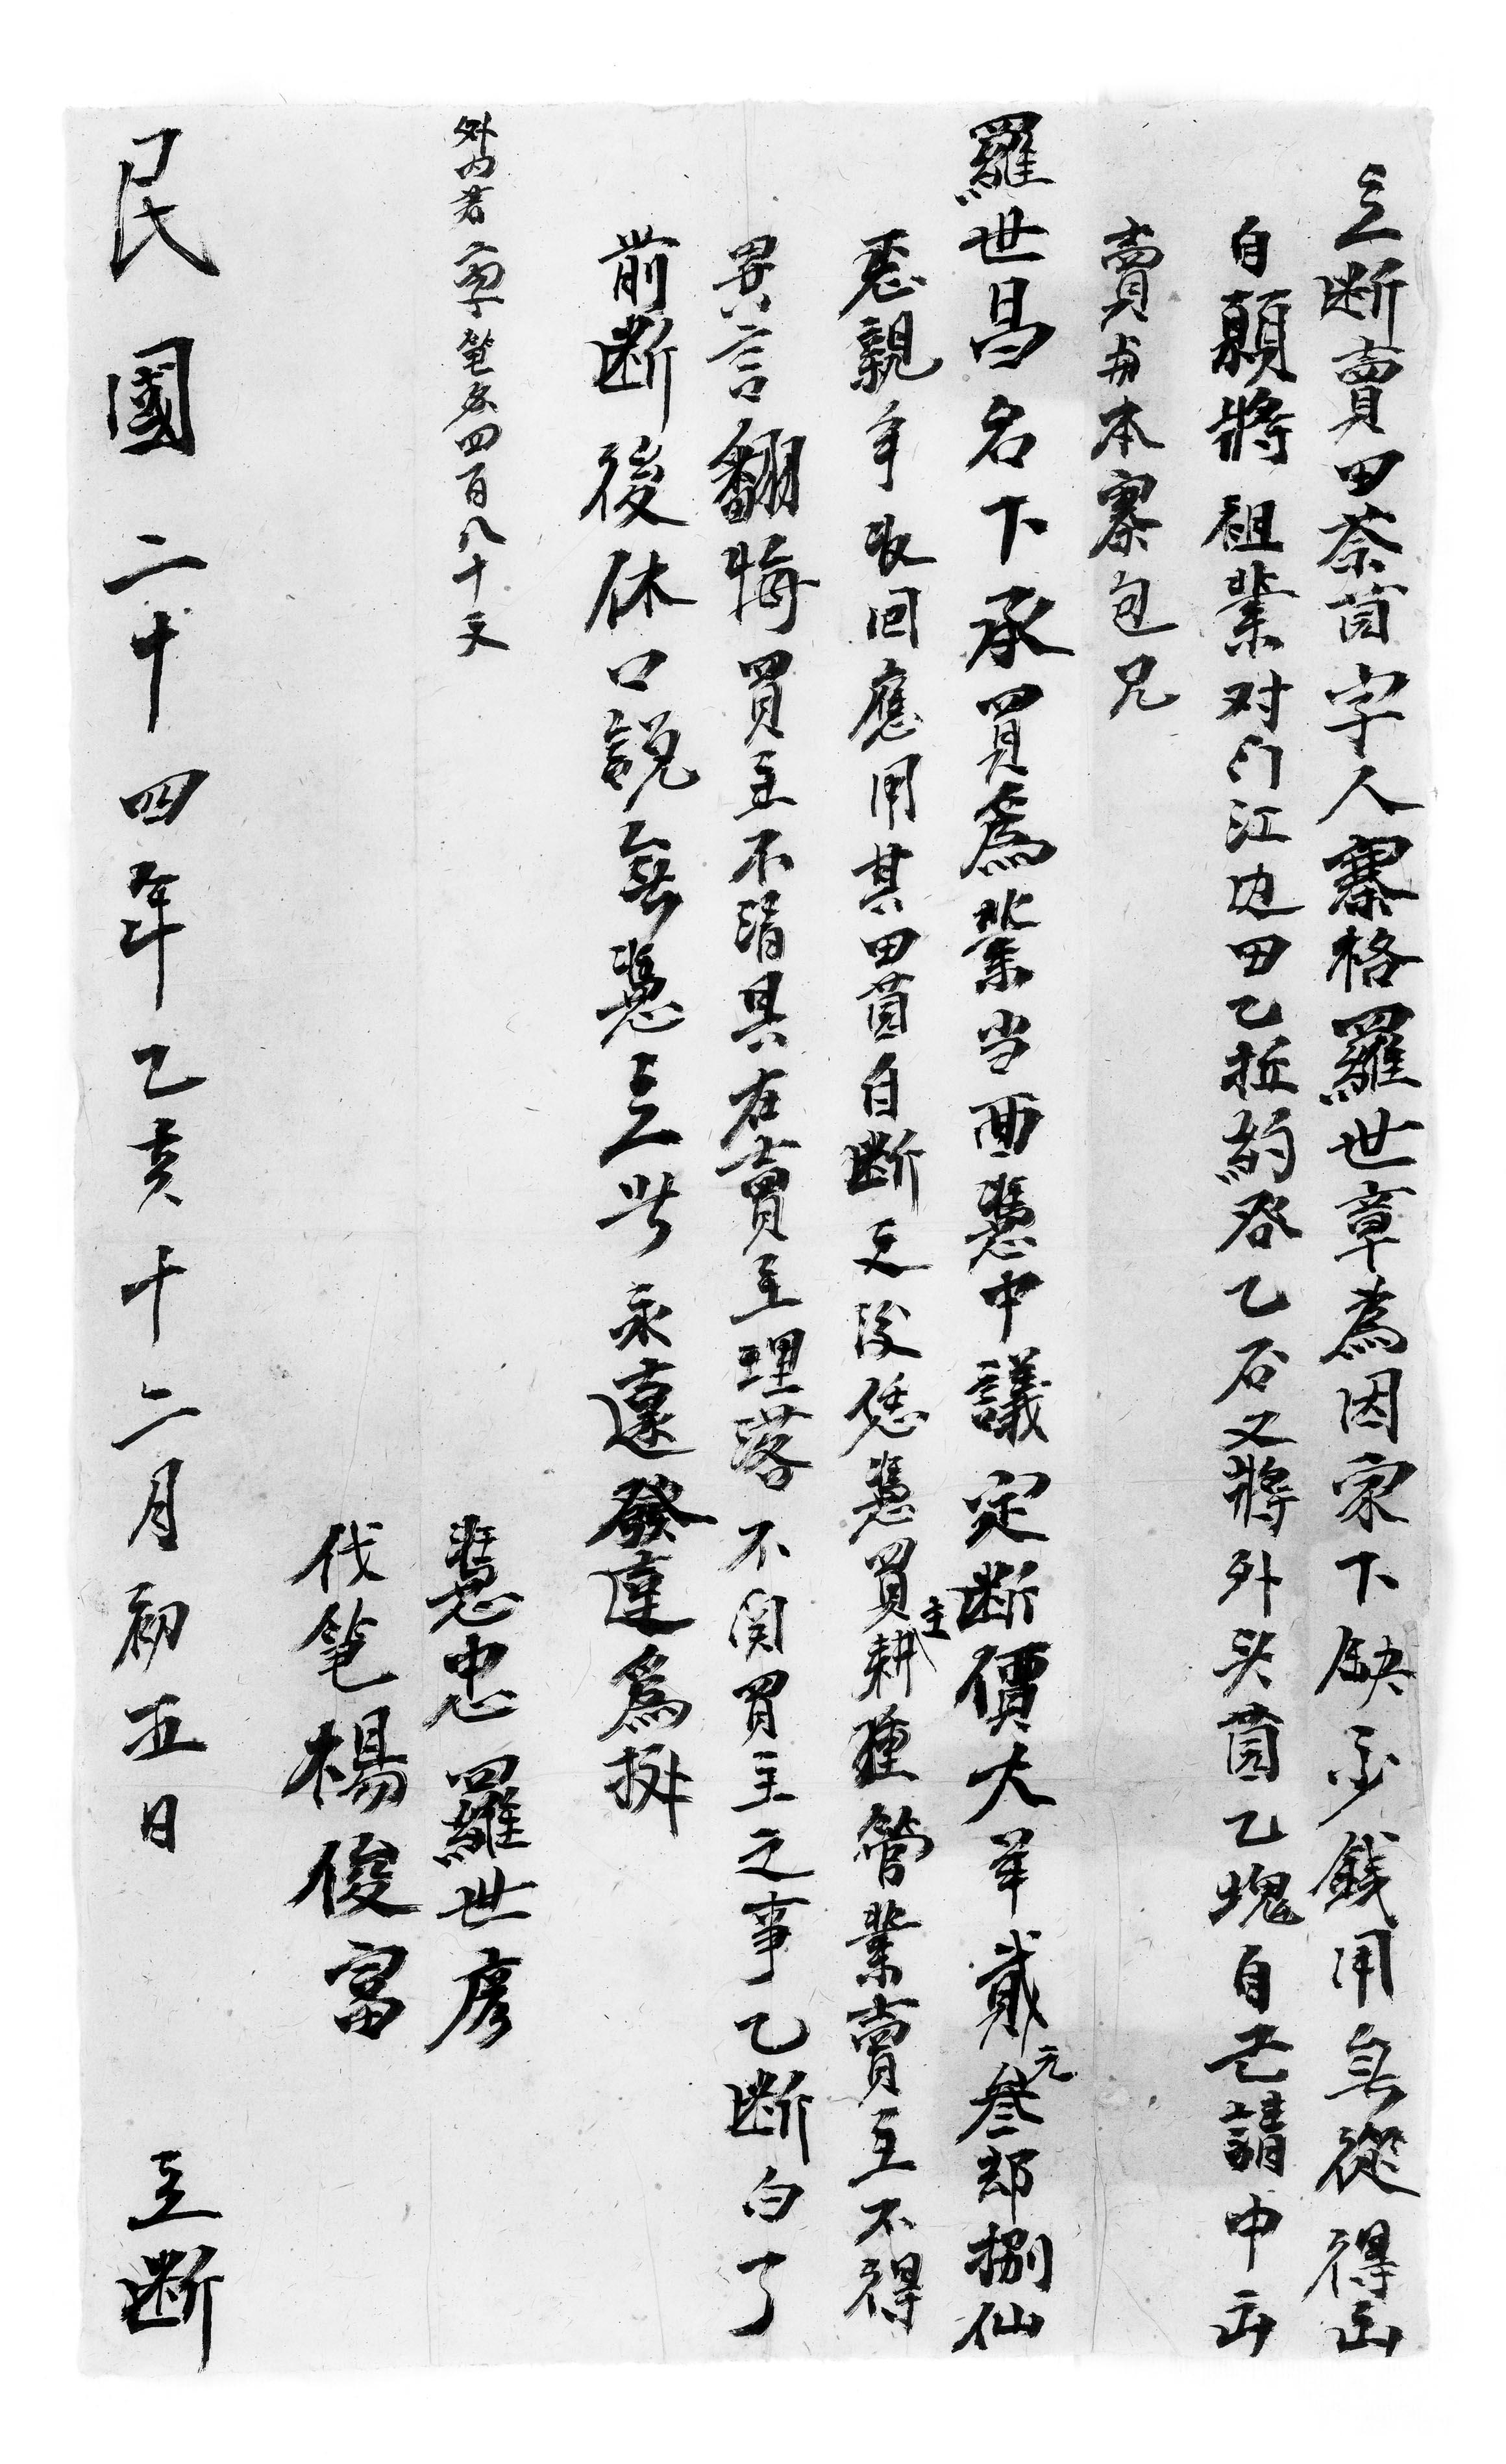 立断賣田荼茵字人寨格羅世章為因家下缺少錢用無從得出
自願將祖業对门江边田乙坵約谷乙石又將外头茵乙塊自己請中出
賣与本寨包兄
羅世昌名下承買為業当面慿中議定断價大洋貳元叁郎捌仙
親手收回應用其田茵自断之後恁慿買主耕種管業賣主不得
異言翻悔買主不清具在賣主理落不関買主之事乙断白了
前断後休口説無慿立此永遠發達為拠
外内者字筆四百八十文
慿忠羅世彦
代筆楊俊富
民國二十四年乙亥十二月初五日立断